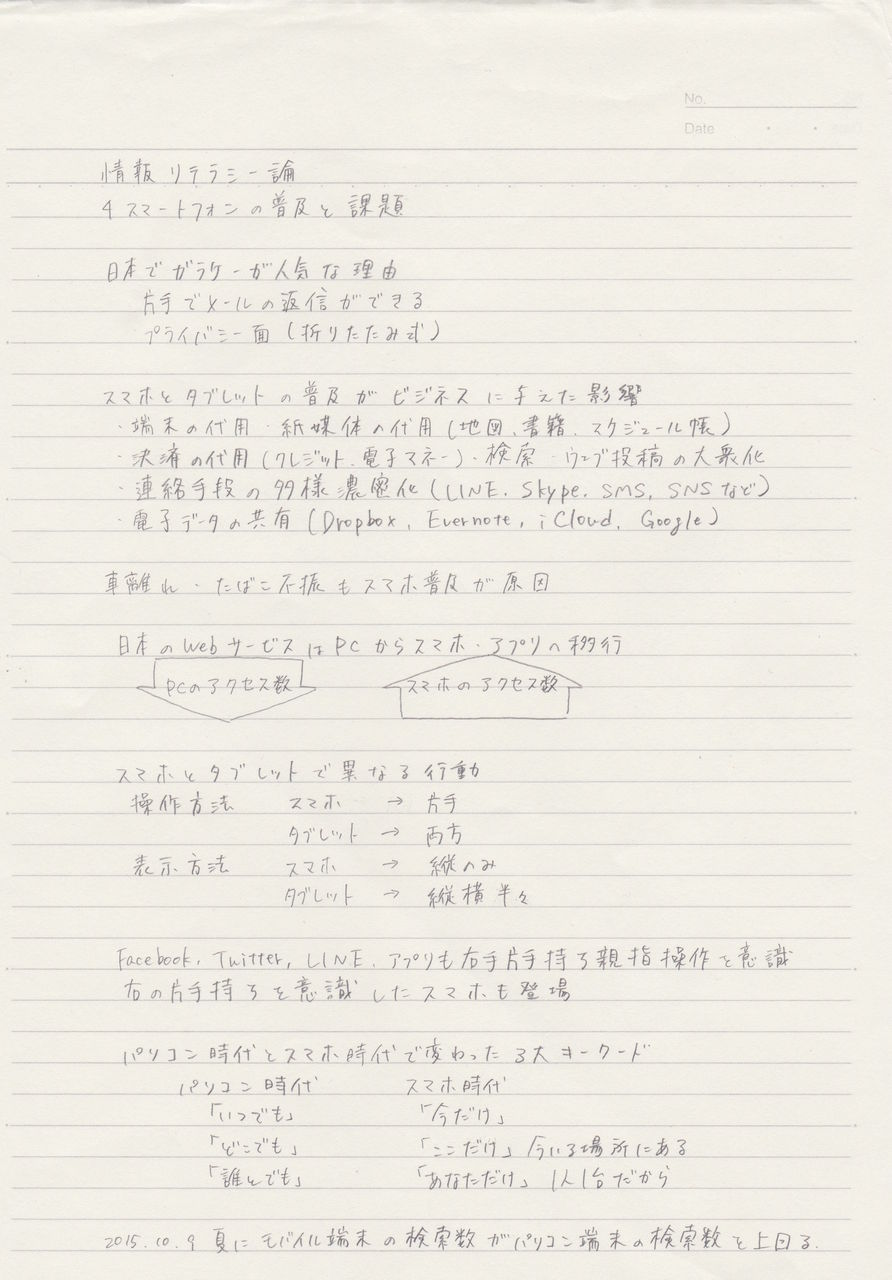 No.
Date
情報リテラシー論
4 スマートフォンの普及と課題
日本でガラケーが人気な理由
片手でメールの返信ができる
プライバシー面(折りたたみ式)
スマホとタブレットの普及がビジネスに与えた影響
・端末の代用・紙媒体の代用(地図、書籍、スケジュール帳)
・決済の代用(クレジット、電子マネー)・検索・ウェブ投稿の大衆化
・連絡手段の多様濃密化(LINE、Skype、SMS、SNSなど)
・電子データの共有(Dropbox, Evernote, iCloud, Google)
車離れ・たばこ不振もスマホ普及が原因
日本のWebサービスはPCからスマホ・アプリへ移行
PCのアクセス数 スマホのアクセス数
スマホとタブレットで異なる行動
操作方法 スマホ → 片手
タブレット → 両方
表示方法 スマホ → 縦のみ
タブレット → 縦横半々
Facebook, Twitter, LINE、アプリも右手片手持ち親指操作を意識
右の片手持ちを意識したスマホも登場
パソコン時代とスマホ時代で変わった3大キーワード
パソコン時代 スマホ時代
「いつでも」 「今だけ」
「どこでも」 「ここだけ」今いる場所にある
「誰とでも」 「あなただけ」1人1台だから
2015.10.9 夏にモバイル端末の検索数がパソコン端末の検索数を上回る.